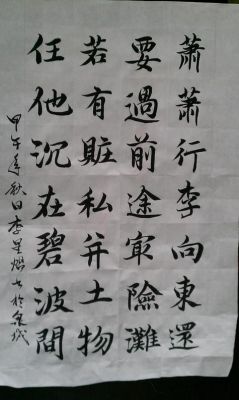 蕭蕭行李向東還
要過前途最險灘
若有贓私並土物
任他沉在碧波間
甲午年秋日李星燃书於泉城